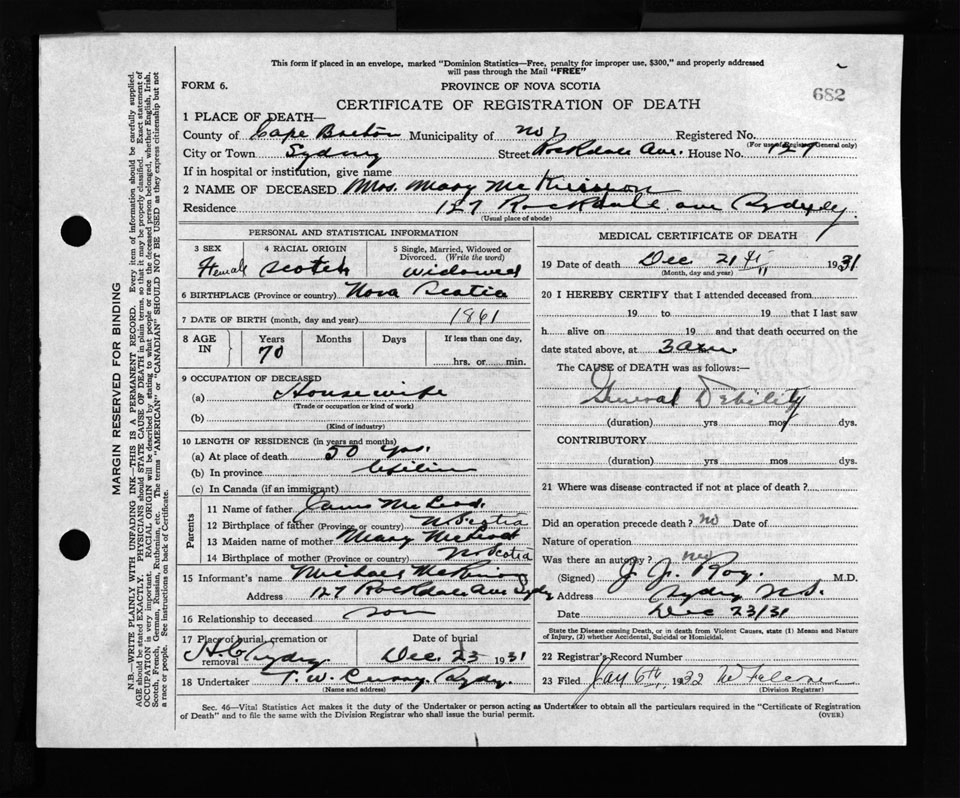 This form if placed in an envelope, marked "Dominion Statistics—Free, penalty for improper use, $300," and properly addressed
will pass through the Mail "FREE"
FORM 6.
PROVINCE OF NOVA SCOTIA
682
CERTIFICATE OF REGISTRATION OF DEATH
1 PLACE OF DEATH—
County of Cape Breton Municipality of No Registered No.
(For use of Registrar General only)
City or Town Sydney Street Rockdale Ave. House No. 127
If in hospital or institution, give name
2 NAME OF DECEASED Mrs. Mary McKinnon
Residence 127 Rockdale ave Sydney.
(Usual place of abode)
PERSONAL AND STATISTICAL INFORMATION
3 SEX 4 RACIAL ORIGIN 5 Single, Married, Widowed or Divorced. (Write the word)
Female Scotch widowed
6 BIRTHPLACE (Province or country) Nova Scotia
7 DATE OF BIRTH (month, day and year) 1861
8 AGE IN Years Months Days If less than one day,
70 hrs. or min.
9 OCCUPATION OF DECEASED
(a) Housewife
(Trade or occupation or kind of work)
(b)
(Kind of industry)
10 LENGTH OF RESIDENCE (in years and months)
(a) At place of death 50 yrs.
(b) In province
(c) In Canada (if an immigrant)
Parents
11 Name of father James McLeod
12 Birthplace of father (Province or country) N Scotia
13 Maiden name of mother Mary McLeod
14 Birthplace of mother (Province or country) N. Scotia
15 Informant's name Michael McKinnon
Address 127 Rockdale Ave Sydney
16 Relationship to deceased son
17 Place of burial, cremation or removal Date of burial
Sydney Dec. 23 1931
18 Undertaker T. W. Curry. Sydney.
(Name and address)
MEDICAL CERTIFICATE OF DEATH
19 Date of death Dec 21st 1931
(Month, day and year)
20 I HEREBY CERTIFY that I attended deceased from
19 to 19 that I last saw
h alive on 19 and that death occurred on the
date stated above, at 3 a.m.
The CAUSE of DEATH was as follows:—
General Debility
(duration) yrs mos dys.
CONTRIBUTORY
(duration) yrs mos dys.
21 Where was disease contracted if not at place of death?
Did an operation precede death? no Date of
Nature of operation
Was there an autopsy? no
(Signed) J. J. Roy. M.D.
Address Sydney N.S.
Date Dec 23/31
State the Disease causing Death, or in death from Violent Causes, state (1) Means and Nature
of Injury, (2) whether Accidental, Suicidal or Homicidal.
22 Registrar's Record Number
23 Filed Jany 6th 1932
(Division Registrar)
Sec. 46—Vital Statistics Act makes it the duty of the Undertaker or person acting as Undertaker to obtain all the particulars required in the "Certificate of Registration
of Death" and to file the same with the Division Registrar who shall issue the burial permit. (OVER)
MARGIN RESERVED FOR BINDING
N.B.—WRITE PLAINLY WITH UNFADING INK—THIS IS A PERMANENT RECORD. Every item of information should be carefully supplied.
AGE should be stated EXACTLY. PHYSICIANS should STATE CAUSE OF DEATH in plain terms, so that it may be properly classified. Exact statement of
OCCUPATION is very important. RACIAL ORIGIN will be described by stating to what people or race the deceased person belonged, whether English, Irish,
Scotch, French, German, Russian, Ruthenian, etc. The terms "AMERICAN" or "CANADIAN" SHOULD NOT BE USED as they express citizenship but not
a race or people. See instructions on back of Certificate.